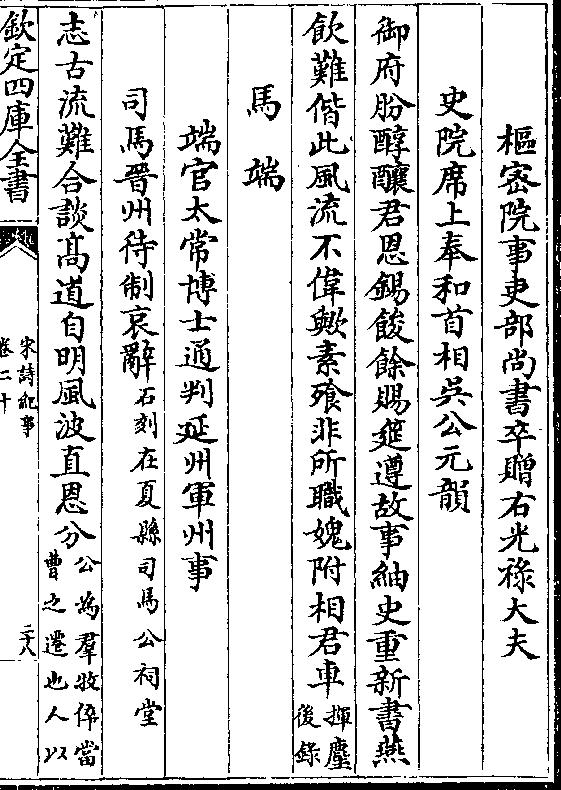 樞宻院事吏部尚書卒贈右光祿大夫
史院席上奉和首相吳公元韻
御府肦醇釀君恩錫餕餘賜筵遵故事紬史重新書燕
飲難偕此風流不偉歟素飱非所職媿附相君車揮麈
後錄
馬端
端官太常博士通判延州軍州事
司馬晉州待制哀辭石刻在夏縣司馬公祠堂
志古流難合談髙道自明風波直恩分公為羣牧倅當
曹之遷也人以
欽定四庫全書
宋詩紀事
卷二十
二十八